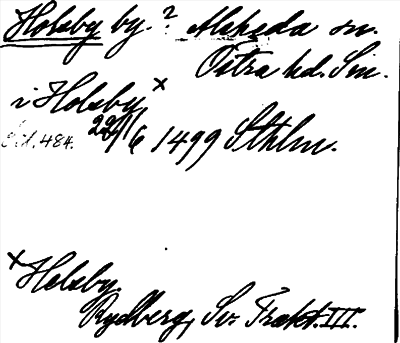 Holsby by.? Alsheda sn.
Östra hd. Sm.
i Holsby x
484. 22/6 1499 Sthlm.
x Helsby.
Rydberg, Sv. Trakt. III.